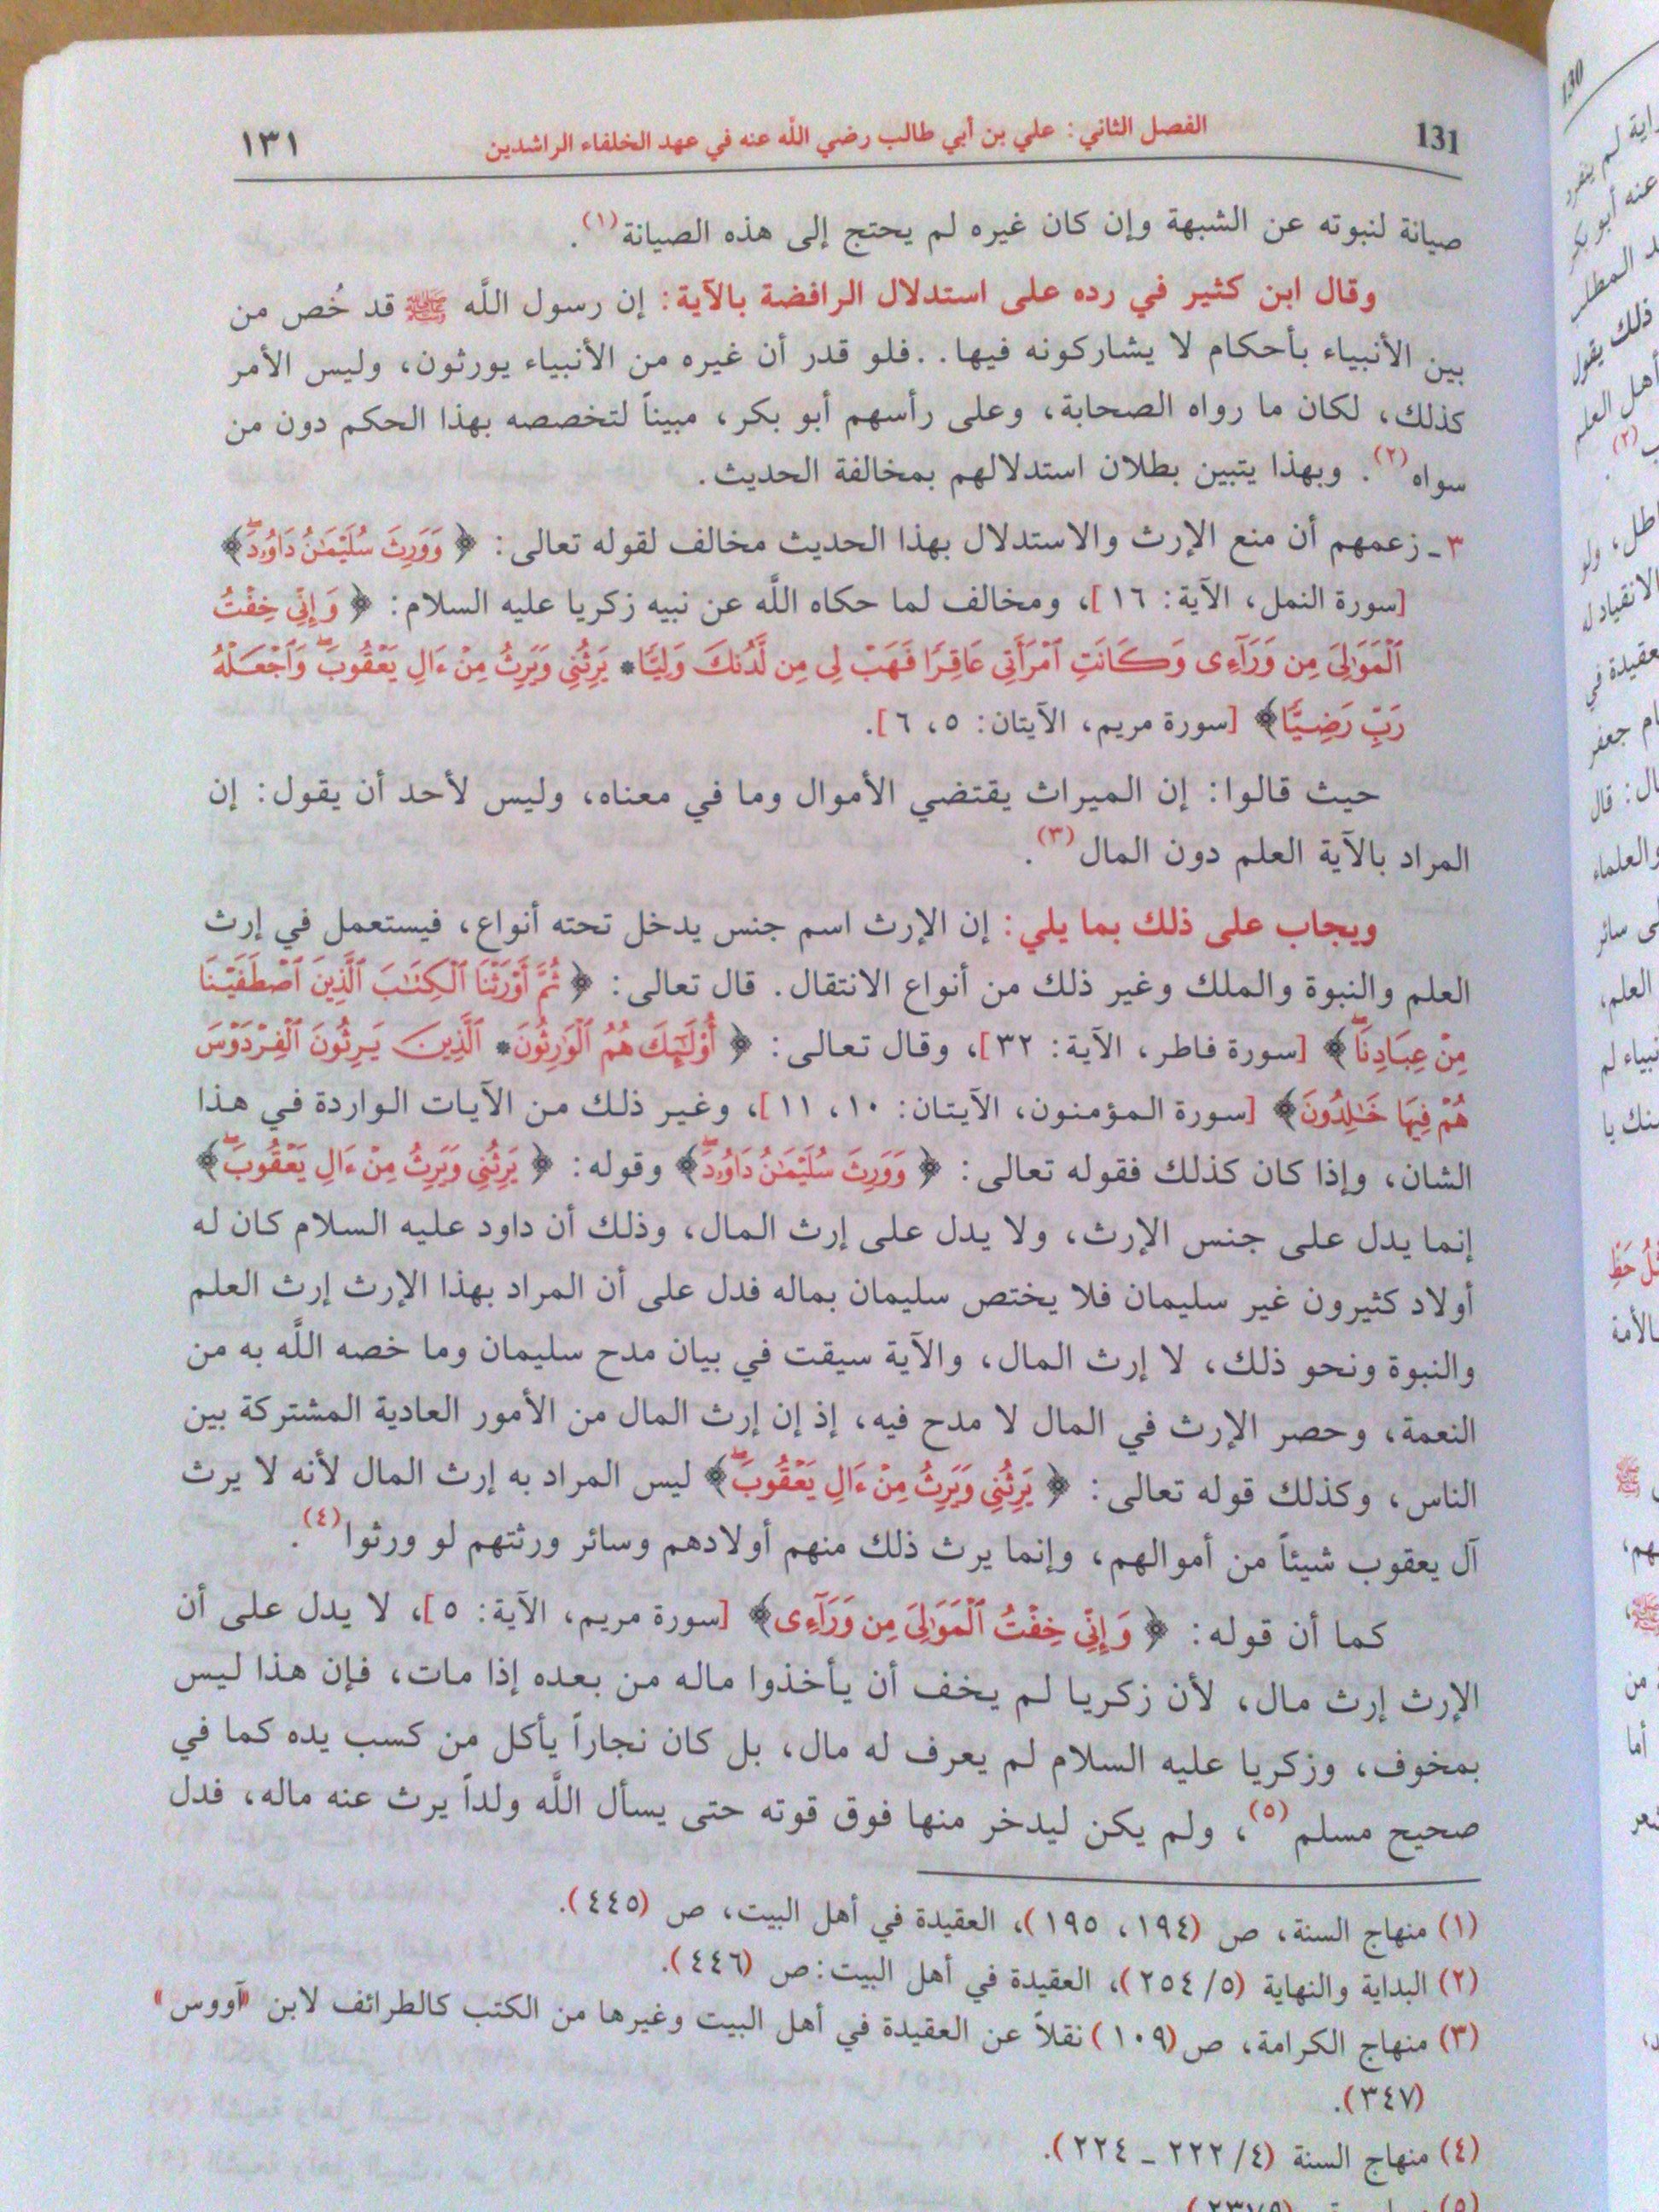 131 الفصل الثاني: علي بن أبي طالب رضي الله عنه في عهد الخلفاء الراشدين ١٣١
صيانة لنبوته عن الشبهة وإن كان غيره لم يحتج إلى هذه الصيانة(١).
وقال ابن كثير في رده على استدلال الرافضة بالآية: إن رسول اللَّه ﷺ قد خُص من
بين الأنبياء بأحكام لا يشاركونه فيها. .فلو قدر أن غيره من الأنبياء يورثون، وليس الأمر
كذلك، لكان ما رواه الصحابة، وعلى رأسهم أبو بكر، مبيناً لتخصصه بهذا الحكم دون من
سواه(٢). وبهذا يتبين بطلان استدلالهم بمخالفة الحديث.
٣ـ زعمهم أن منع الإرث والاستدلال بهذا الحديث مخالف لقوله تعالى: ﴿ وَوَرِثَ سُلَيْمَٰنُ دَاوُۥدَۖ﴾
[سورة النمل، الآية: ١٦]، ومخالف لما حكاه اللَّه عن نبيه زكريا عليه السلام: ﴿ وَإِنِّى خِفْتُ
ٱلْمَوَٰلِىَ مِن وَرَآءِى وَكَانَتِ ٱمْرَأَتِى عَاقِرًا فَهَبْ لِى مِن لَّدُنكَ وَلِيًّا* يَرِثُنِى وَيَرِثُ مِنْ ءَالِ يَعْقُوبَۖ وَٱجْعَلْهُ
رَبِّ رَضِيًّا﴾ [سورة مريم، الآيتان: ٥، ٦].
حيث قالوا: إن الميراث يقتضي الأموال وما في معناه، وليس لأحد أن يقول: إن
المراد بالآية العلم دون المال(٣).
ويجاب على ذلك بما يلي: إن الإرث اسم جنس يدخل تحته أنواع، فيستعمل في إرث
العلم والنبوة والملك وغير ذلك من أنواع الانتقال. قال تعالى: ﴿ ثُمَّ أَوْرَثْنَا ٱلْكِتَٰبَ ٱلَّذِينَ ٱصْطَفَيْنَا
مِنْ عِبَادِنَاۖ ﴾ [سورة فاطر، الآية: ٣٢]، وقال تعالى: ﴿ أُوْلَٰٓئِكَ هُمُ ٱلْوَٰرِثُونَ* ٱلَّذِينَ يَرِثُونَ ٱلْفِرْدَوْسَ
هُمْ فِيهَا خَٰلِدُونَ﴾ [سورة المؤمنون، الآيتان: ١٠، ١١]، وغير ذلك من الآيات الواردة في هذا
الشان، وإذا كان كذلك فقوله تعالى: ﴿ وَوَرِثَ سُلَيْمَٰنُ دَاوُۥدَۖ﴾ وقوله: ﴿ يَرِثُنِى وَيَرِثُ مِنْ ءَالِ يَعْقُوبَۖ﴾
إنما يدل على جنس الإرث، ولا يدل على إرث المال، وذلك أن داود عليه السلام كان له
أولاد كثيرون غير سليمان فلا يختص سليمان بماله فدل على أن المراد بهذا الإرث إرث العلم
والنبوة ونحو ذلك، لا إرث المال، والآية سيقت في بيان مدح سليمان وما خصه اللَّه به من
النعمة، وحصر الإرث في المال لا مدح فيه، إذ إن إرث المال من الأمور العادية المشتركة بين
الناس، وكذلك قوله تعالى: ﴿ يَرِثُنِى وَيَرِثُ مِنْ ءَالِ يَعْقُوبَۖ﴾ ليس المراد به إرث المال لأنه لا يرث
آل يعقوب شيئاً من أموالهم، وإنما يرث ذلك منهم أولادهم وسائر ورثتهم لو ورثوا(٤).
كما أن قوله: ﴿ وَإِنِّى خِفْتُ ٱلْمَوَٰلِىَ مِن وَرَآءِى﴾ [سورة مريم، الآية: ٥]، لا يدل على أن
الإرث إرث مال، لأن زكريا لم يخف أن يأخذوا ماله من بعده إذا مات، فإن هذا ليس
بمخوف، وزكريا عليه السلام لم يعرف له مال، بل كان نجاراً يأكل من كسب يده كما في
صحيح مسلم(٥)، ولم يكن ليدخر منها فوق قوته حتى يسأل اللَّه ولداً يرث عنه ماله، فدل
(١) منهاج السنة، ص (١٩٤، ١٩٥)، العقيدة في أهل البيت، ص (٤٤٥).
(٢) البداية والنهاية (٢٥٤/٥)، العقيدة في أهل البيت: ص (٤٤٦).
(٣) منهاج الكرامة، ص(١٠٩) نقلاً عن العقيدة في أهل البيت وغيرها من الكتب كالطرائف لابن «آووس»
(٣٤٧).
(٤) منهاج السنة (٢٢٢/٤ ـ ٢٢٤).
130